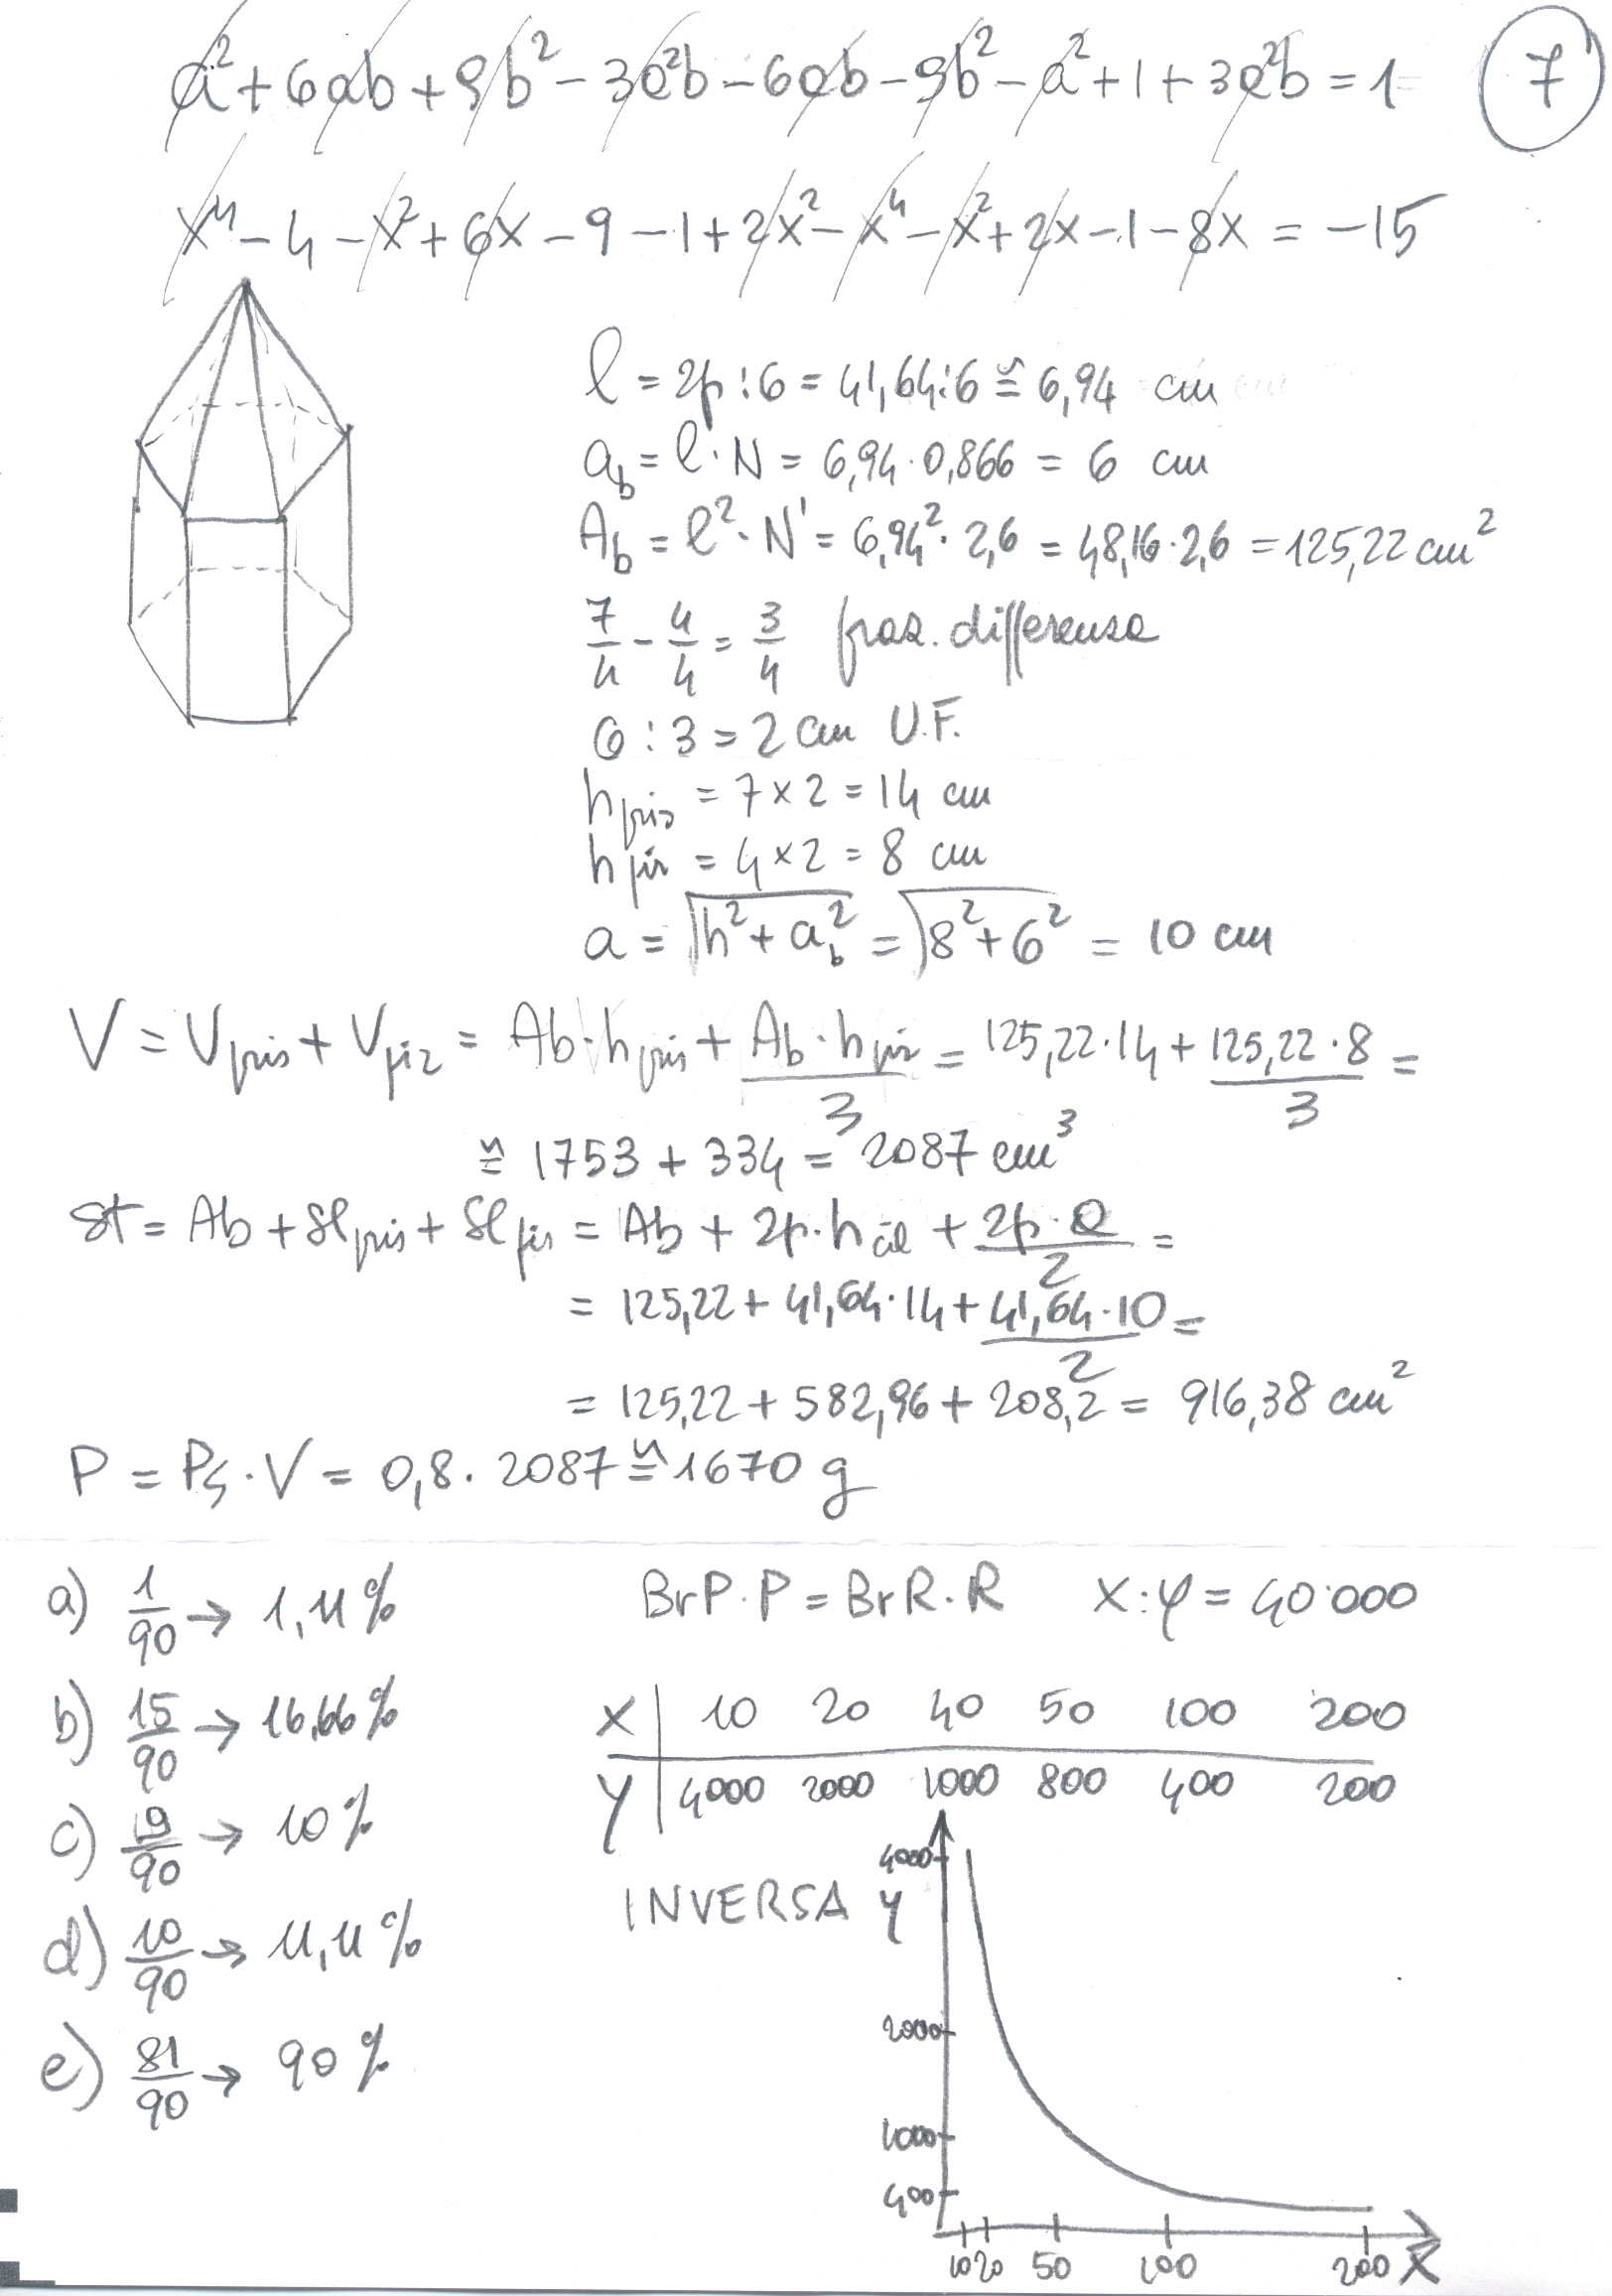 a² + 6ab + 9b² - 3a²b - 6ab - 9b² - a² + 1 + 3a²b = 1
7
x⁴ - 4 - x² + 6x - 9 - 1 + 2x² - x⁴ - x² + 2x - 1 - 8x = -15
l = 2p : 6 = 41,64 : 6 ≅ 6,94 cm
a_b = l · N = 6,94 · 0,866 = 6 cm
A_b = l² · N' = 6,94² · 2,6 = 48,16 · 2,6 = 125,22 cm²
7/4 - 4/4 = 3/4 fraz. differenza
6 : 3 = 2 cm U.F.
h pris = 7 × 2 = 14 cm
h pir = 4 × 2 = 8 cm
a = √(h² + a_b²) = √(8² + 6²) = 10 cm
V = V pris + V pir = Ab · h pris + (Ab · h pir)/3 = 125,22 · 14 + (125,22 · 8)/3 =
≅ 1753 + 334 = 2087 cm³
St = Ab + Sl pris + Sl pir = Ab + 2p · h cil + (2p · a)/2 =
= 125,22 + 41,64 · 14 + (41,64 · 10)/2 =
= 125,22 + 582,96 + 208,2 = 916,38 cm²
P = Ps · V = 0,8 · 2087 ≅ 1670 g
a) 1/90 → 1,11%
b) 15/90 → 16,66%
c) 9/90 → 10%
d) 10/90 → 11,11%
e) 81/90 → 90%
BrP · P = BrR · R X : Y = 40'000
X 10 20 40 50 100 200
Y 4000 2000 1000 800 400 200
INVERSA Y
4000
2000
1000
400
10 20 50 100 200 X